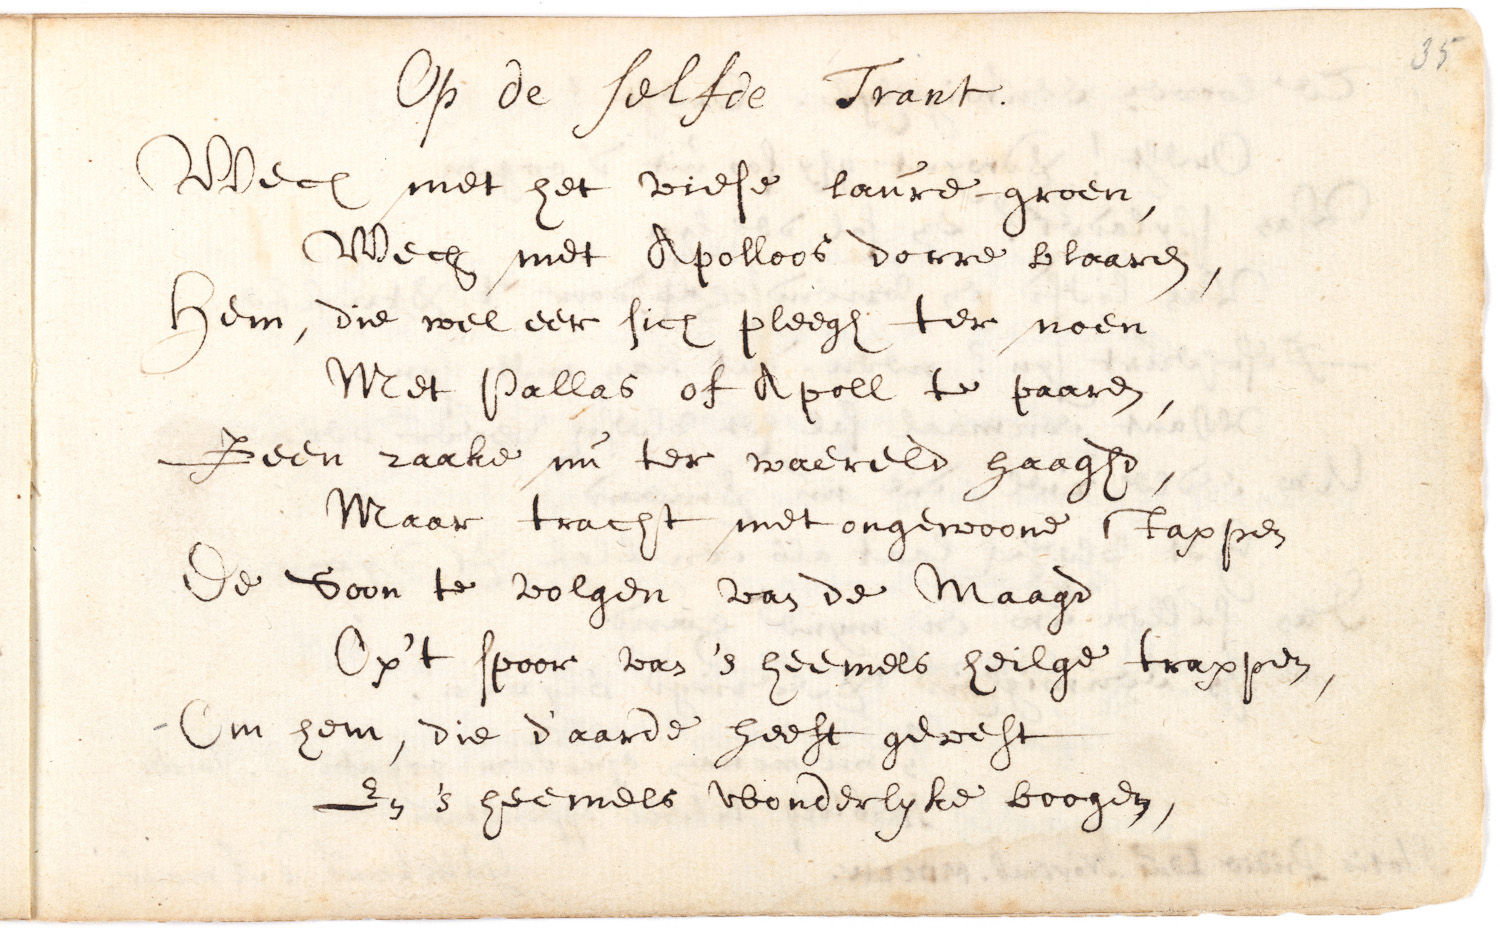 35
Op de selfde Trant.
Wech met het viese laure-groen,
Wech met Apolloos dorre blaaren,
Hem, die wel eer sich pleegh ter noen
Met Pallas of Apoll te paaren,
Geen zaake nu ter waereld haaghd,
Maar tracht met ongewoone stappen
De Soon te volgen van de Maagd
Op't spoor van 's heemels heilge trappen,
Om hem, die d'aarde heeft gevest
En 's heemels wonderlyke boogen,